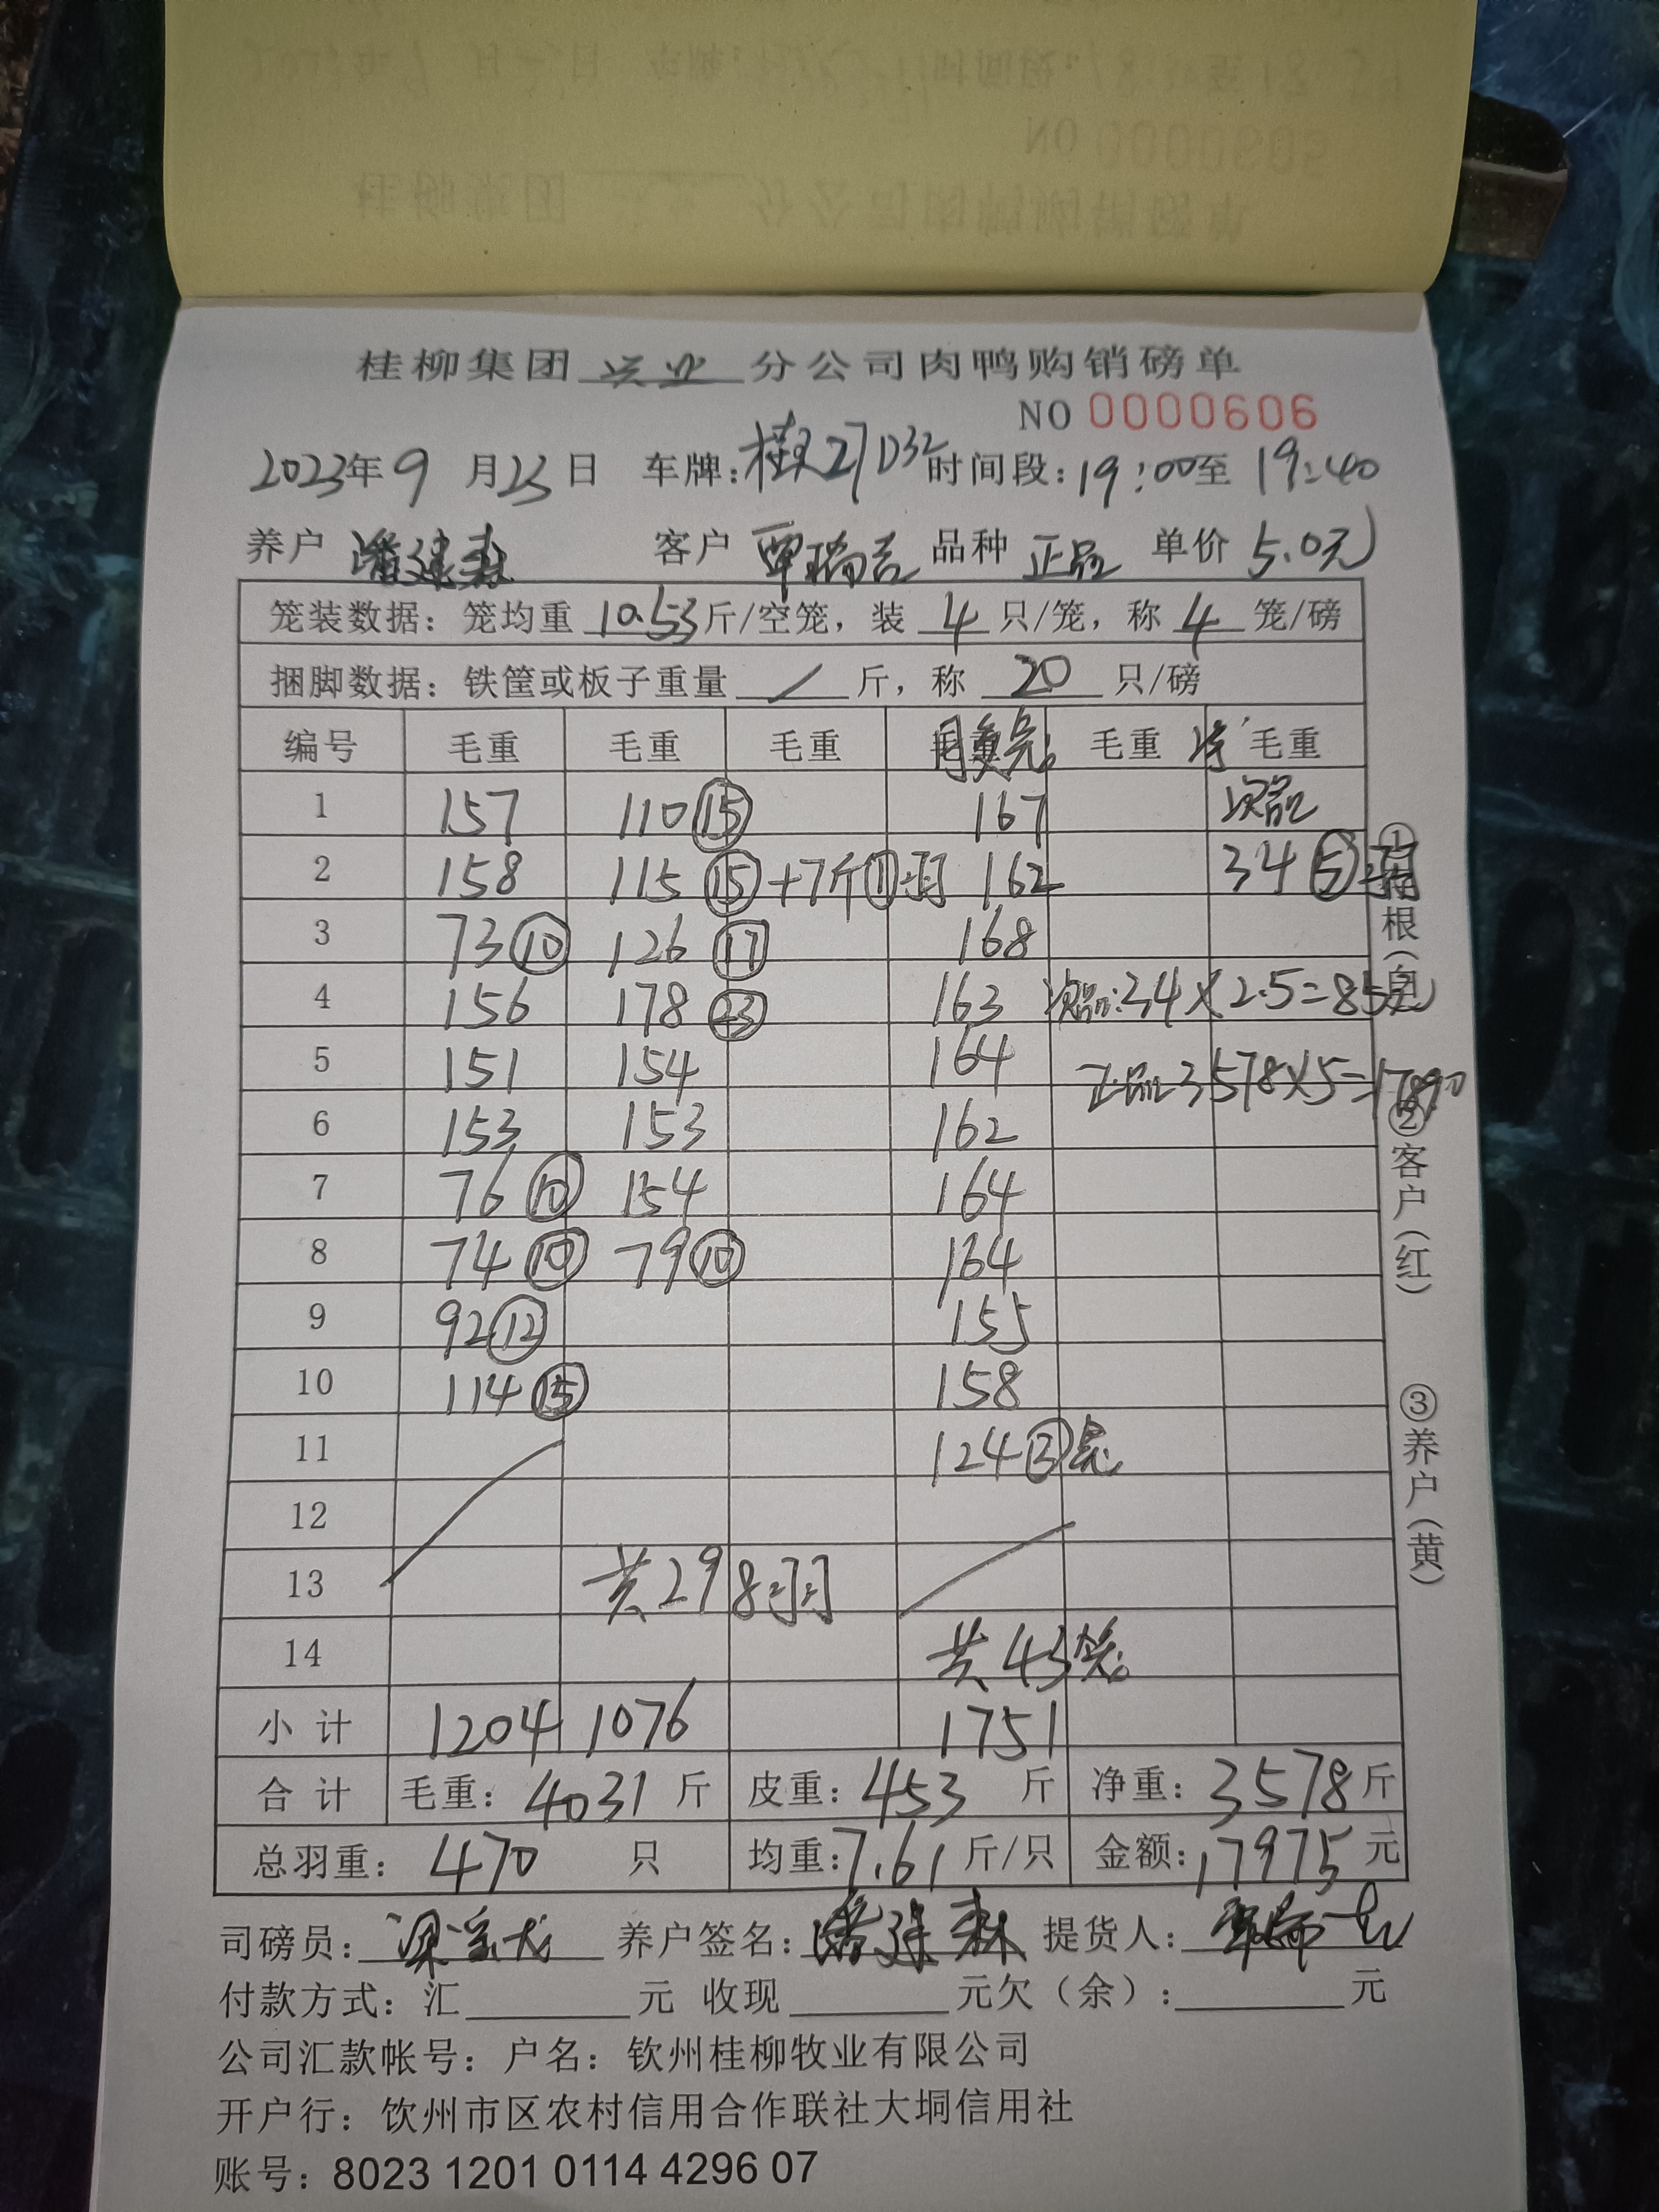 桂柳集团 兴业 分公司肉鸭购销磅单
NO 0000606
2023年9月23日 车牌:桂 时间段:19:00至19:40
养户 潘建森 客户 覃瑞吉 品种 正品 单价 5.0元
笼装数据:笼均重 10.53 斤/空笼,装 4 只/笼,称 4 笼/磅
捆脚数据:铁筐或板子重量 / 斤,称 20 只/磅
编号 毛重 毛重 毛重 毛重 毛重 毛重
1 157 110⑮ 167 次品
2 158 115⑮+7斤①羽 162 34⑤
3 73⑩ 126⑰ 168
4 156 178㉓ 163 次品:34×2.5=85元
5 151 154 164 正品3578×5=17890
6 153 153 162
7 76⑩ 154 164
8 74⑩ 79⑩ 164
9 92⑫ 155
10 114⑮ 158
11 124③笼
12
13 共298羽
14 共43笼
小计 1204 1076 1751
合计 毛重:4031斤 皮重:453斤 净重:3578斤
总羽重:470只 均重:7.61斤/只 金额:17975元
司磅员: 养户签名:潘建森 提货人:
付款方式:汇 元 收现 元欠(余): 元
公司汇款帐号:户名:钦州桂柳牧业有限公司
开户行:饮州市区农村信用合作联社大垌信用社
账号:8023 1201 0114 4296 07
①存根(白)
②客户(红)
③养户(黄)